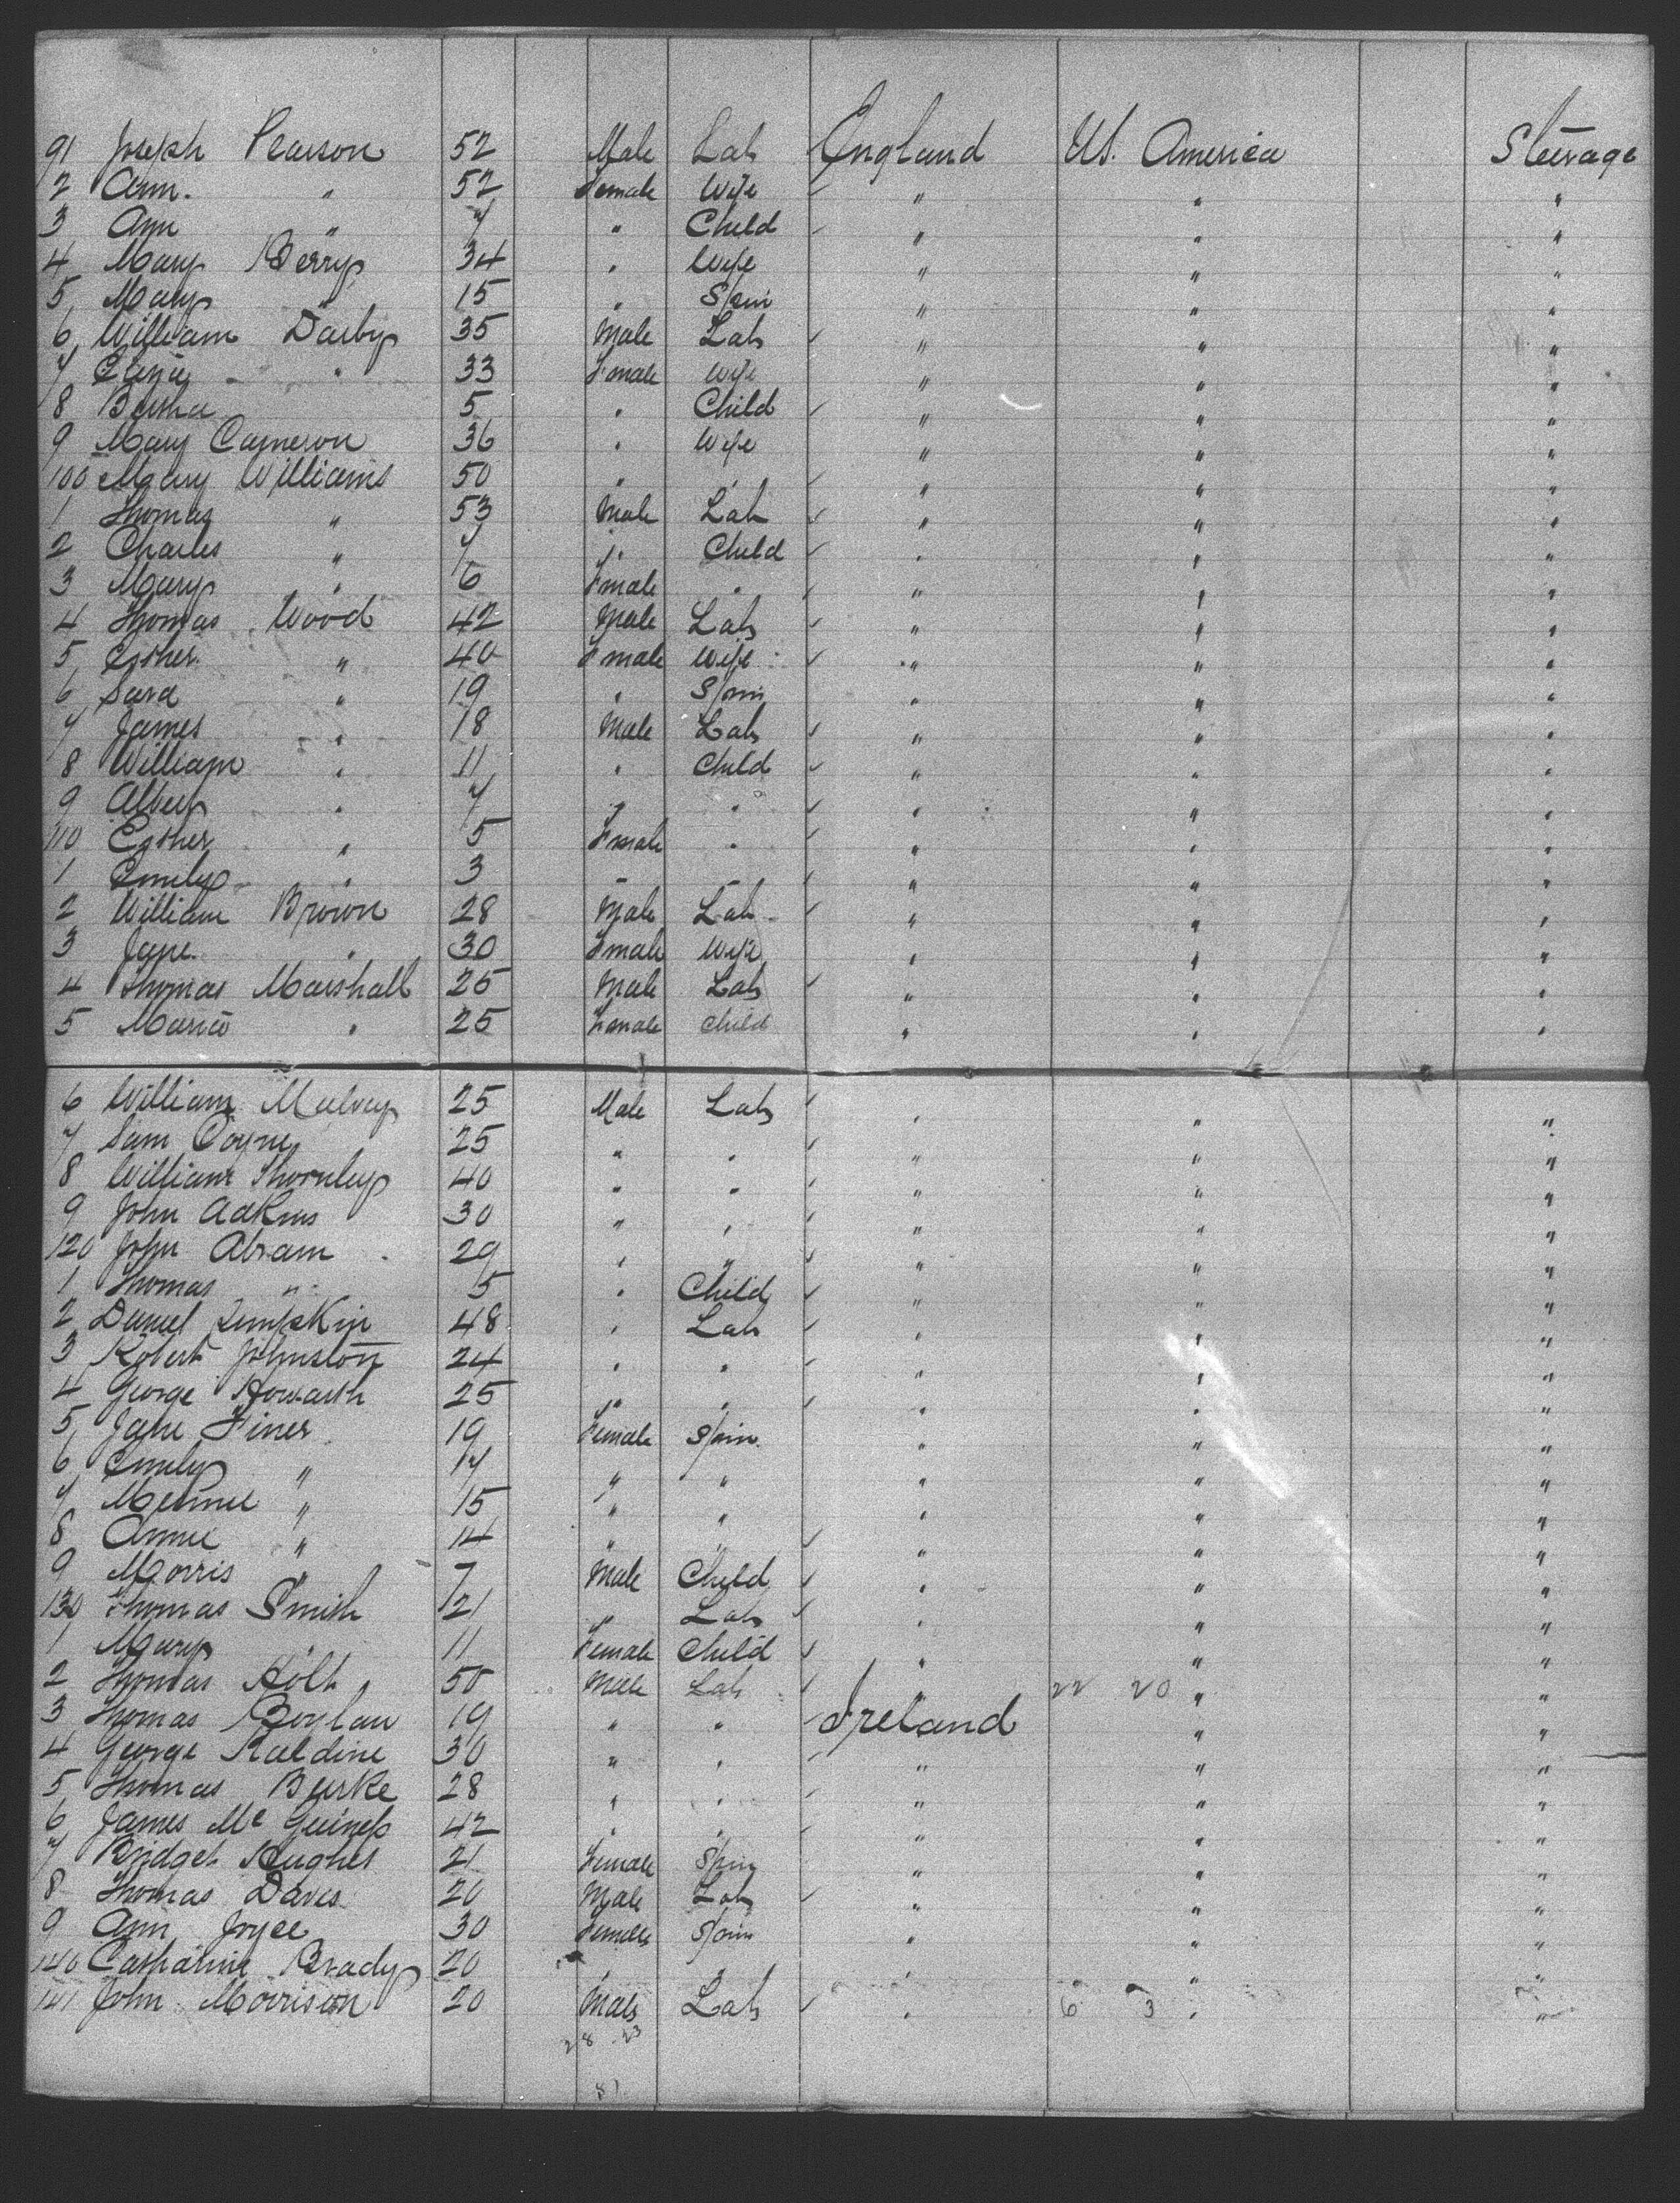 91 Joseph Pearson 52 Male Lab England U.S. America Steerage
2 Ann. " 52 Female Wife " " "
3 Ann " 7 " Child " " "
4 Mary Berry 34 " Wife " " "
5 Mary " 15 " Spin " " "
6 William Darby 35 Male Lab " " "
7 " 33 Female Wife " " "
8 Bertha 5 " Child " " "
9 Mary Cameron 36 " Wife " " "
100 Mary Williams 50 " " " " "
1 Thomas " 53 Male Lab " " "
2 Charles " 7 " Child " " "
3 Mary " 6 Female " " " "
4 Thomas Wood 42 Male Lab " " "
5 Esther " 40 Female Wife " " "
6 Sara " 19 " Spin " " "
7 James " 18 Male Lab " " "
8 William " 11 " Child " " "
9 " 7 " " " " "
110 Esther " 5 Female " " " "
1 Emily " 3 " " " " "
2 William Brown 28 Male Lab " " "
3 Jane. " 30 Female Wife " " "
4 Thomas Marshall 25 Male Lab " " "
5 Maria " 25 Female Child " " "
6 William 25 Male Lab " " "
7 Sam Coyne 25 " " " " "
8 William Thornley 40 " " " " "
9 John Adkins 30 " " " " "
120 John Abram 29 " " " " "
1 Thomas " 5 " Child " " "
2 Daniel 48 " Lab " " "
3 Robert Johnston 24 " " " " "
4 George Howarth 25 " " " " "
5 Jane Finer 19 Female Spin. " " "
6 Emily " 17 " " " " "
7 Minnie " 15 " " " " "
8 Annie " 14 " " " " "
9 Morris " 7 Male Child " " "
130 Thomas Smith 21 " Lab " " "
1 Mary 11 Female Child " " "
2 Thomas Holt 50 Male Lab " 22 20 " "
3 Thomas Boylan 19 " " Ireland " "
4 George 30 " " " " "
5 Thomas Burke 28 " " " " "
6 James Mc Guiness 42 " " " " "
7 Bridget Hughes 21 Female Spin " " "
8 Thomas Daves 20 Male Lab " " "
9 Ann Joyce 30 Female Spin " " "
140 Catharine Brady 20 " " " " "
141 John Morrison 20 Male Lab " 6 3 " "
28 23